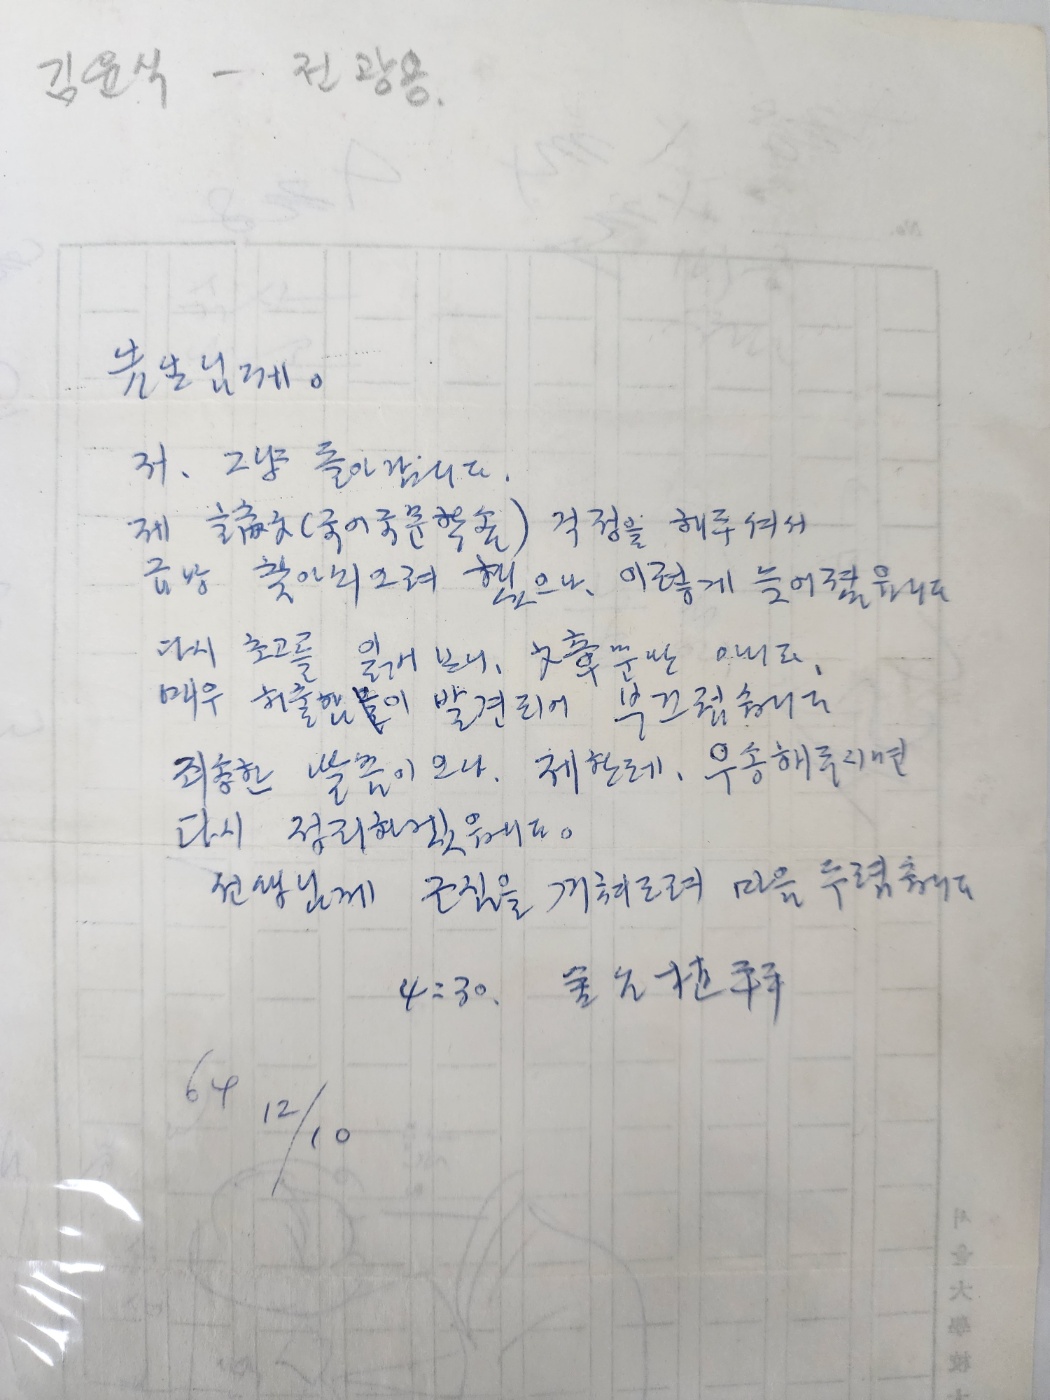 김윤식 - 전광용.
先生님께。
저、그냥 돌아갑니다.
제 論文(국어국문학술) 걱정을 해주셔서
금방 찾아뵈오려 했으나、이렇게 늦어졌읍니다
다시 초고를 읽어 보니、文章뿐만 아니라、
매우 허술함들이 발견되어 부끄럽습니다
죄송한 말씀이오나、제한테、우송해주시면
다시 정리하겠읍니다。
전생님께 근심을 끼쳐드려 마음 두렵습니다
4:30. 金允植拜
64 12/10
서울大學校